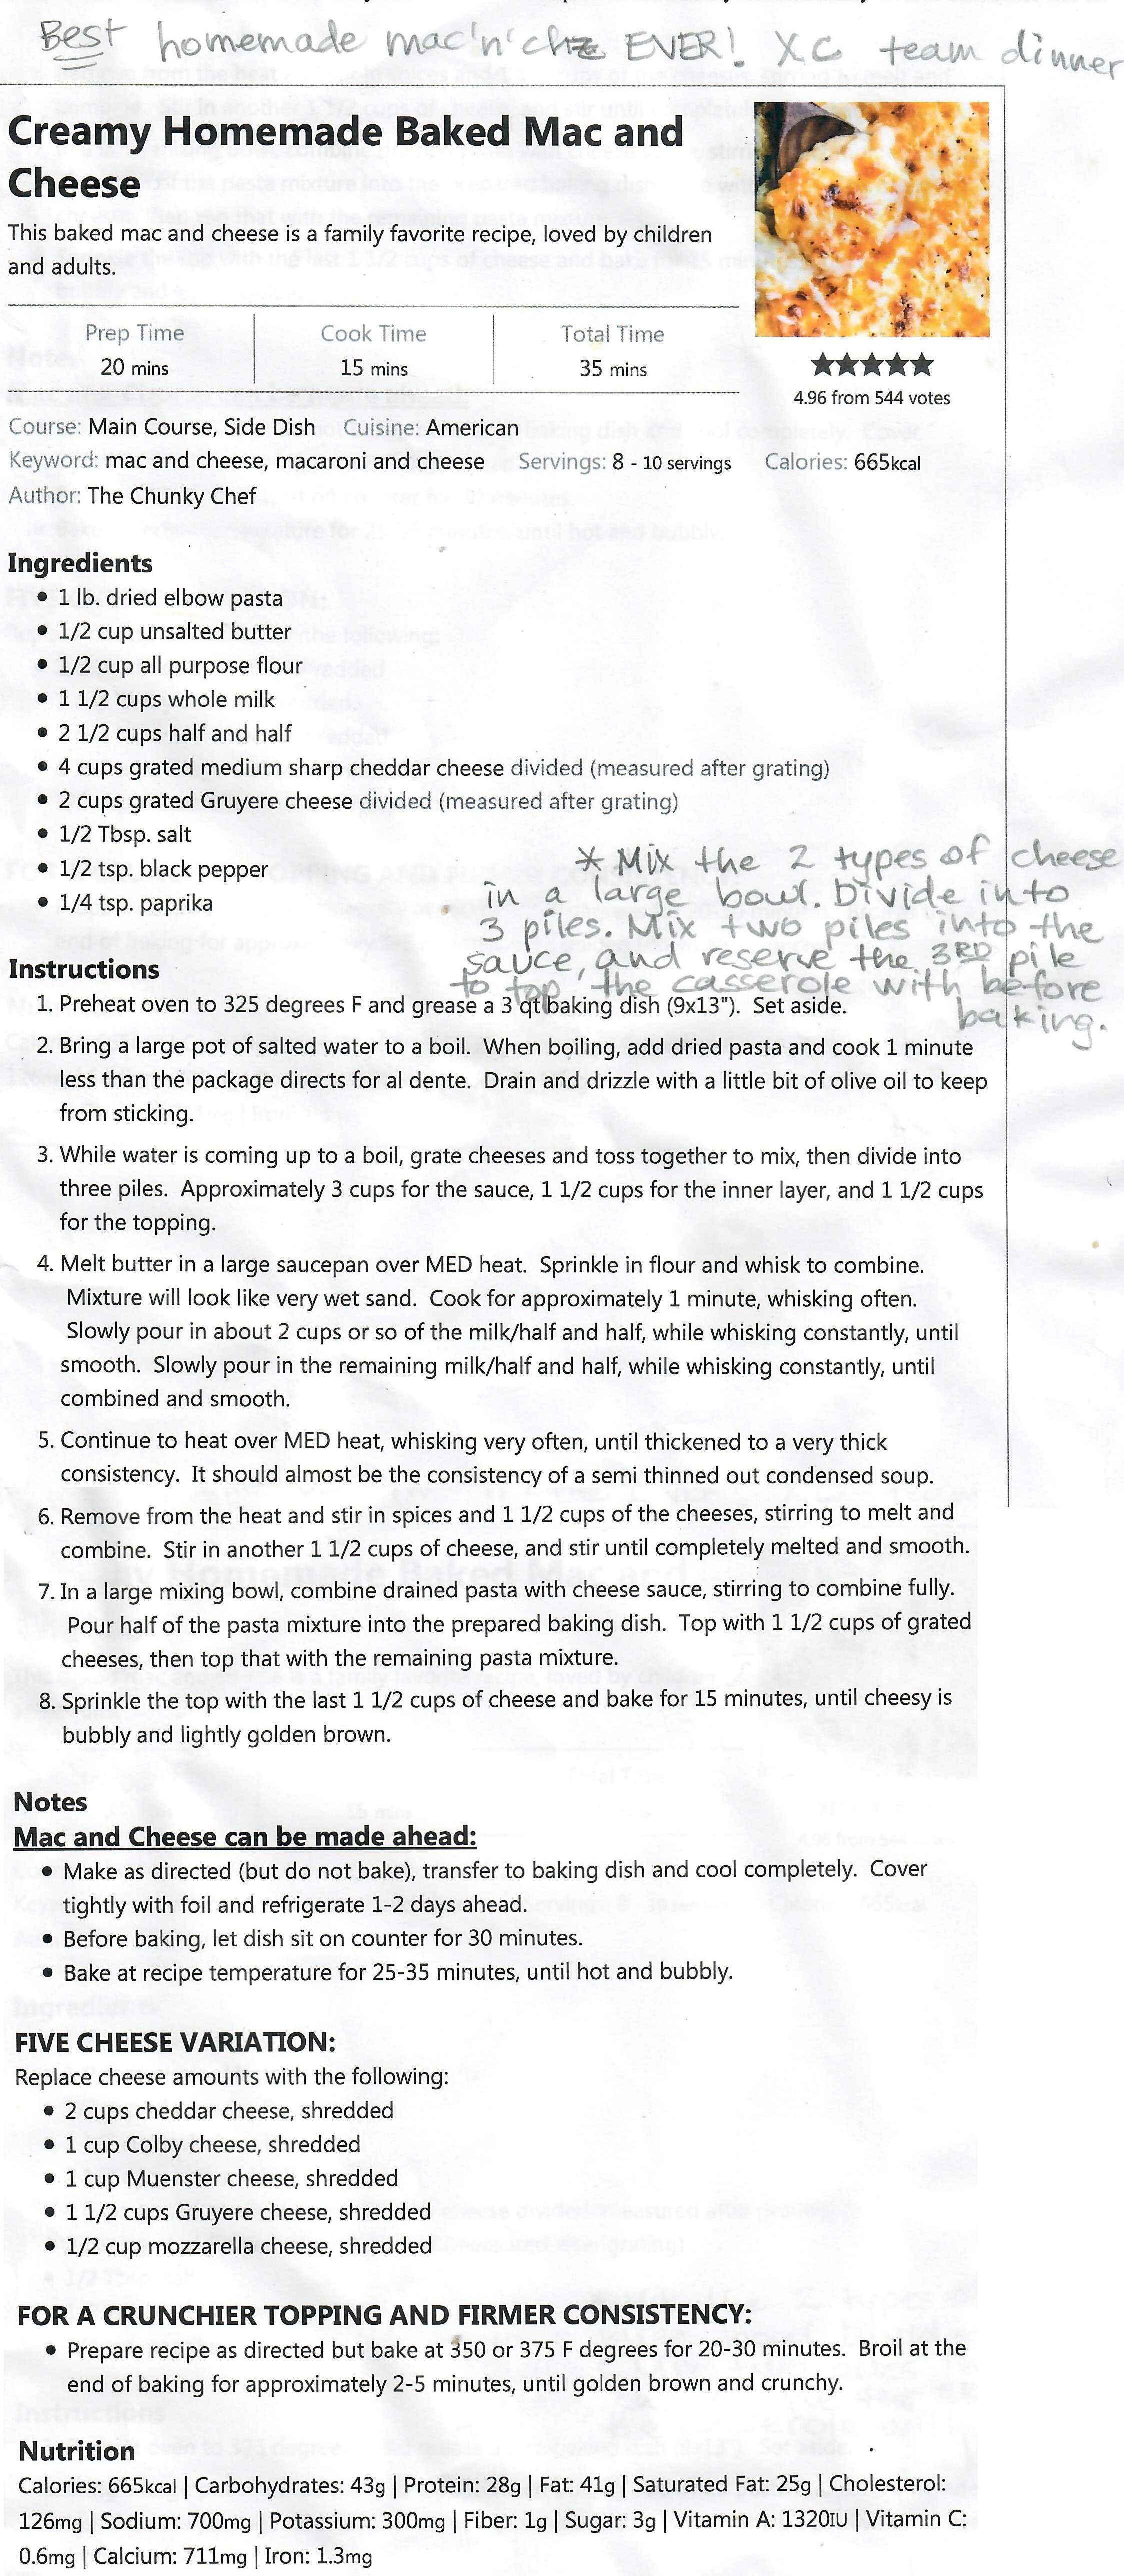 Best homemade mac'n'chz EVER! XC team dinner
Creamy Homemade Baked Mac and
Cheese
This baked mac and cheese is a family favorite recipe, loved by children
and adults.
Prep Time Cook Time Total Time
20 mins 15 mins 35 mins
4.96 from 544 votes
Course: Main Course, Side Dish Cuisine: American
Keyword: mac and cheese, macaroni and cheese Servings: 8 - 10 servings Calories: 665kcal
Author: The Chunky Chef
Ingredients
• 1 lb. dried elbow pasta
• 1/2 cup unsalted butter
• 1/2 cup all purpose flour
• 1 1/2 cups whole milk
• 2 1/2 cups half and half
• 4 cups grated medium sharp cheddar cheese divided (measured after grating)
• 2 cups grated Gruyere cheese divided (measured after grating)
• 1/2 Tbsp. salt
• 1/2 tsp. black pepper
• 1/4 tsp. paprika
* Mix the 2 types of cheese
in a large bowl. Divide into
3 piles. Mix two piles into the
sauce, and reserve the 3RD pile
to top the casserole with before
baking.
Instructions
1. Preheat oven to 325 degrees F and grease a 3 qt baking dish (9x13"). Set aside.
2. Bring a large pot of salted water to a boil. When boiling, add dried pasta and cook 1 minute
less than the package directs for al dente. Drain and drizzle with a little bit of olive oil to keep
from sticking.
3. While water is coming up to a boil, grate cheeses and toss together to mix, then divide into
three piles. Approximately 3 cups for the sauce, 1 1/2 cups for the inner layer, and 1 1/2 cups
for the topping.
4. Melt butter in a large saucepan over MED heat. Sprinkle in flour and whisk to combine.
Mixture will look like very wet sand. Cook for approximately 1 minute, whisking often.
Slowly pour in about 2 cups or so of the milk/half and half, while whisking constantly, until
smooth. Slowly pour in the remaining milk/half and half, while whisking constantly, until
combined and smooth.
5. Continue to heat over MED heat, whisking very often, until thickened to a very thick
consistency. It should almost be the consistency of a semi thinned out condensed soup.
6. Remove from the heat and stir in spices and 1 1/2 cups of the cheeses, stirring to melt and
combine. Stir in another 1 1/2 cups of cheese, and stir until completely melted and smooth.
7. In a large mixing bowl, combine drained pasta with cheese sauce, stirring to combine fully.
Pour half of the pasta mixture into the prepared baking dish. Top with 1 1/2 cups of grated
cheeses, then top that with the remaining pasta mixture.
8. Sprinkle the top with the last 1 1/2 cups of cheese and bake for 15 minutes, until cheesy is
bubbly and lightly golden brown.
Notes
Mac and Cheese can be made ahead:
• Make as directed (but do not bake), transfer to baking dish and cool completely. Cover
tightly with foil and refrigerate 1-2 days ahead.
• Before baking, let dish sit on counter for 30 minutes.
• Bake at recipe temperature for 25-35 minutes, until hot and bubbly.
FIVE CHEESE VARIATION:
Replace cheese amounts with the following:
• 2 cups cheddar cheese, shredded
• 1 cup Colby cheese, shredded
• 1 cup Muenster cheese, shredded
• 1 1/2 cups Gruyere cheese, shredded
• 1/2 cup mozzarella cheese, shredded
FOR A CRUNCHIER TOPPING AND FIRMER CONSISTENCY:
• Prepare recipe as directed but bake at 350 or 375 F degrees for 20-30 minutes. Broil at the
end of baking for approximately 2-5 minutes, until golden brown and crunchy.
Nutrition
Calories: 665kcal | Carbohydrates: 43g | Protein: 28g | Fat: 41g | Saturated Fat: 25g | Cholesterol:
126mg | Sodium: 700mg | Potassium: 300mg | Fiber: 1g | Sugar: 3g | Vitamin A: 1320IU | Vitamin C:
0.6mg | Calcium: 711mg | Iron: 1.3mg